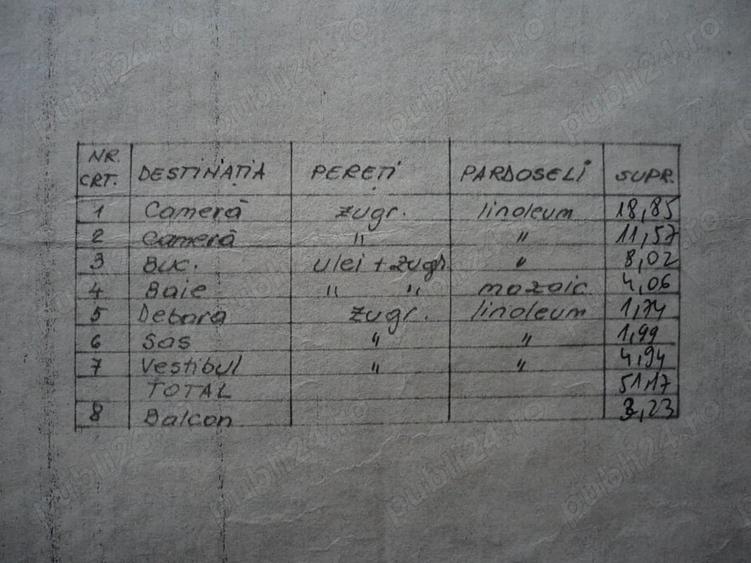 NR. CRT. DESTINAȚIA PEREȚI PARDOSELI SUPR.
1 Cameră zugr. linoleum 18,85
2 Cameră " " 11,57
3 Buc. ulei + zugr. " 8,02
4 Baie " " mozaic 4,06
5 Debara zugr. linoleum 1,74
6 Sas " " 1,99
7 Vestibul " " 4,94
TOTAL 51,17
8 Balcon 3,23
publi24.ro